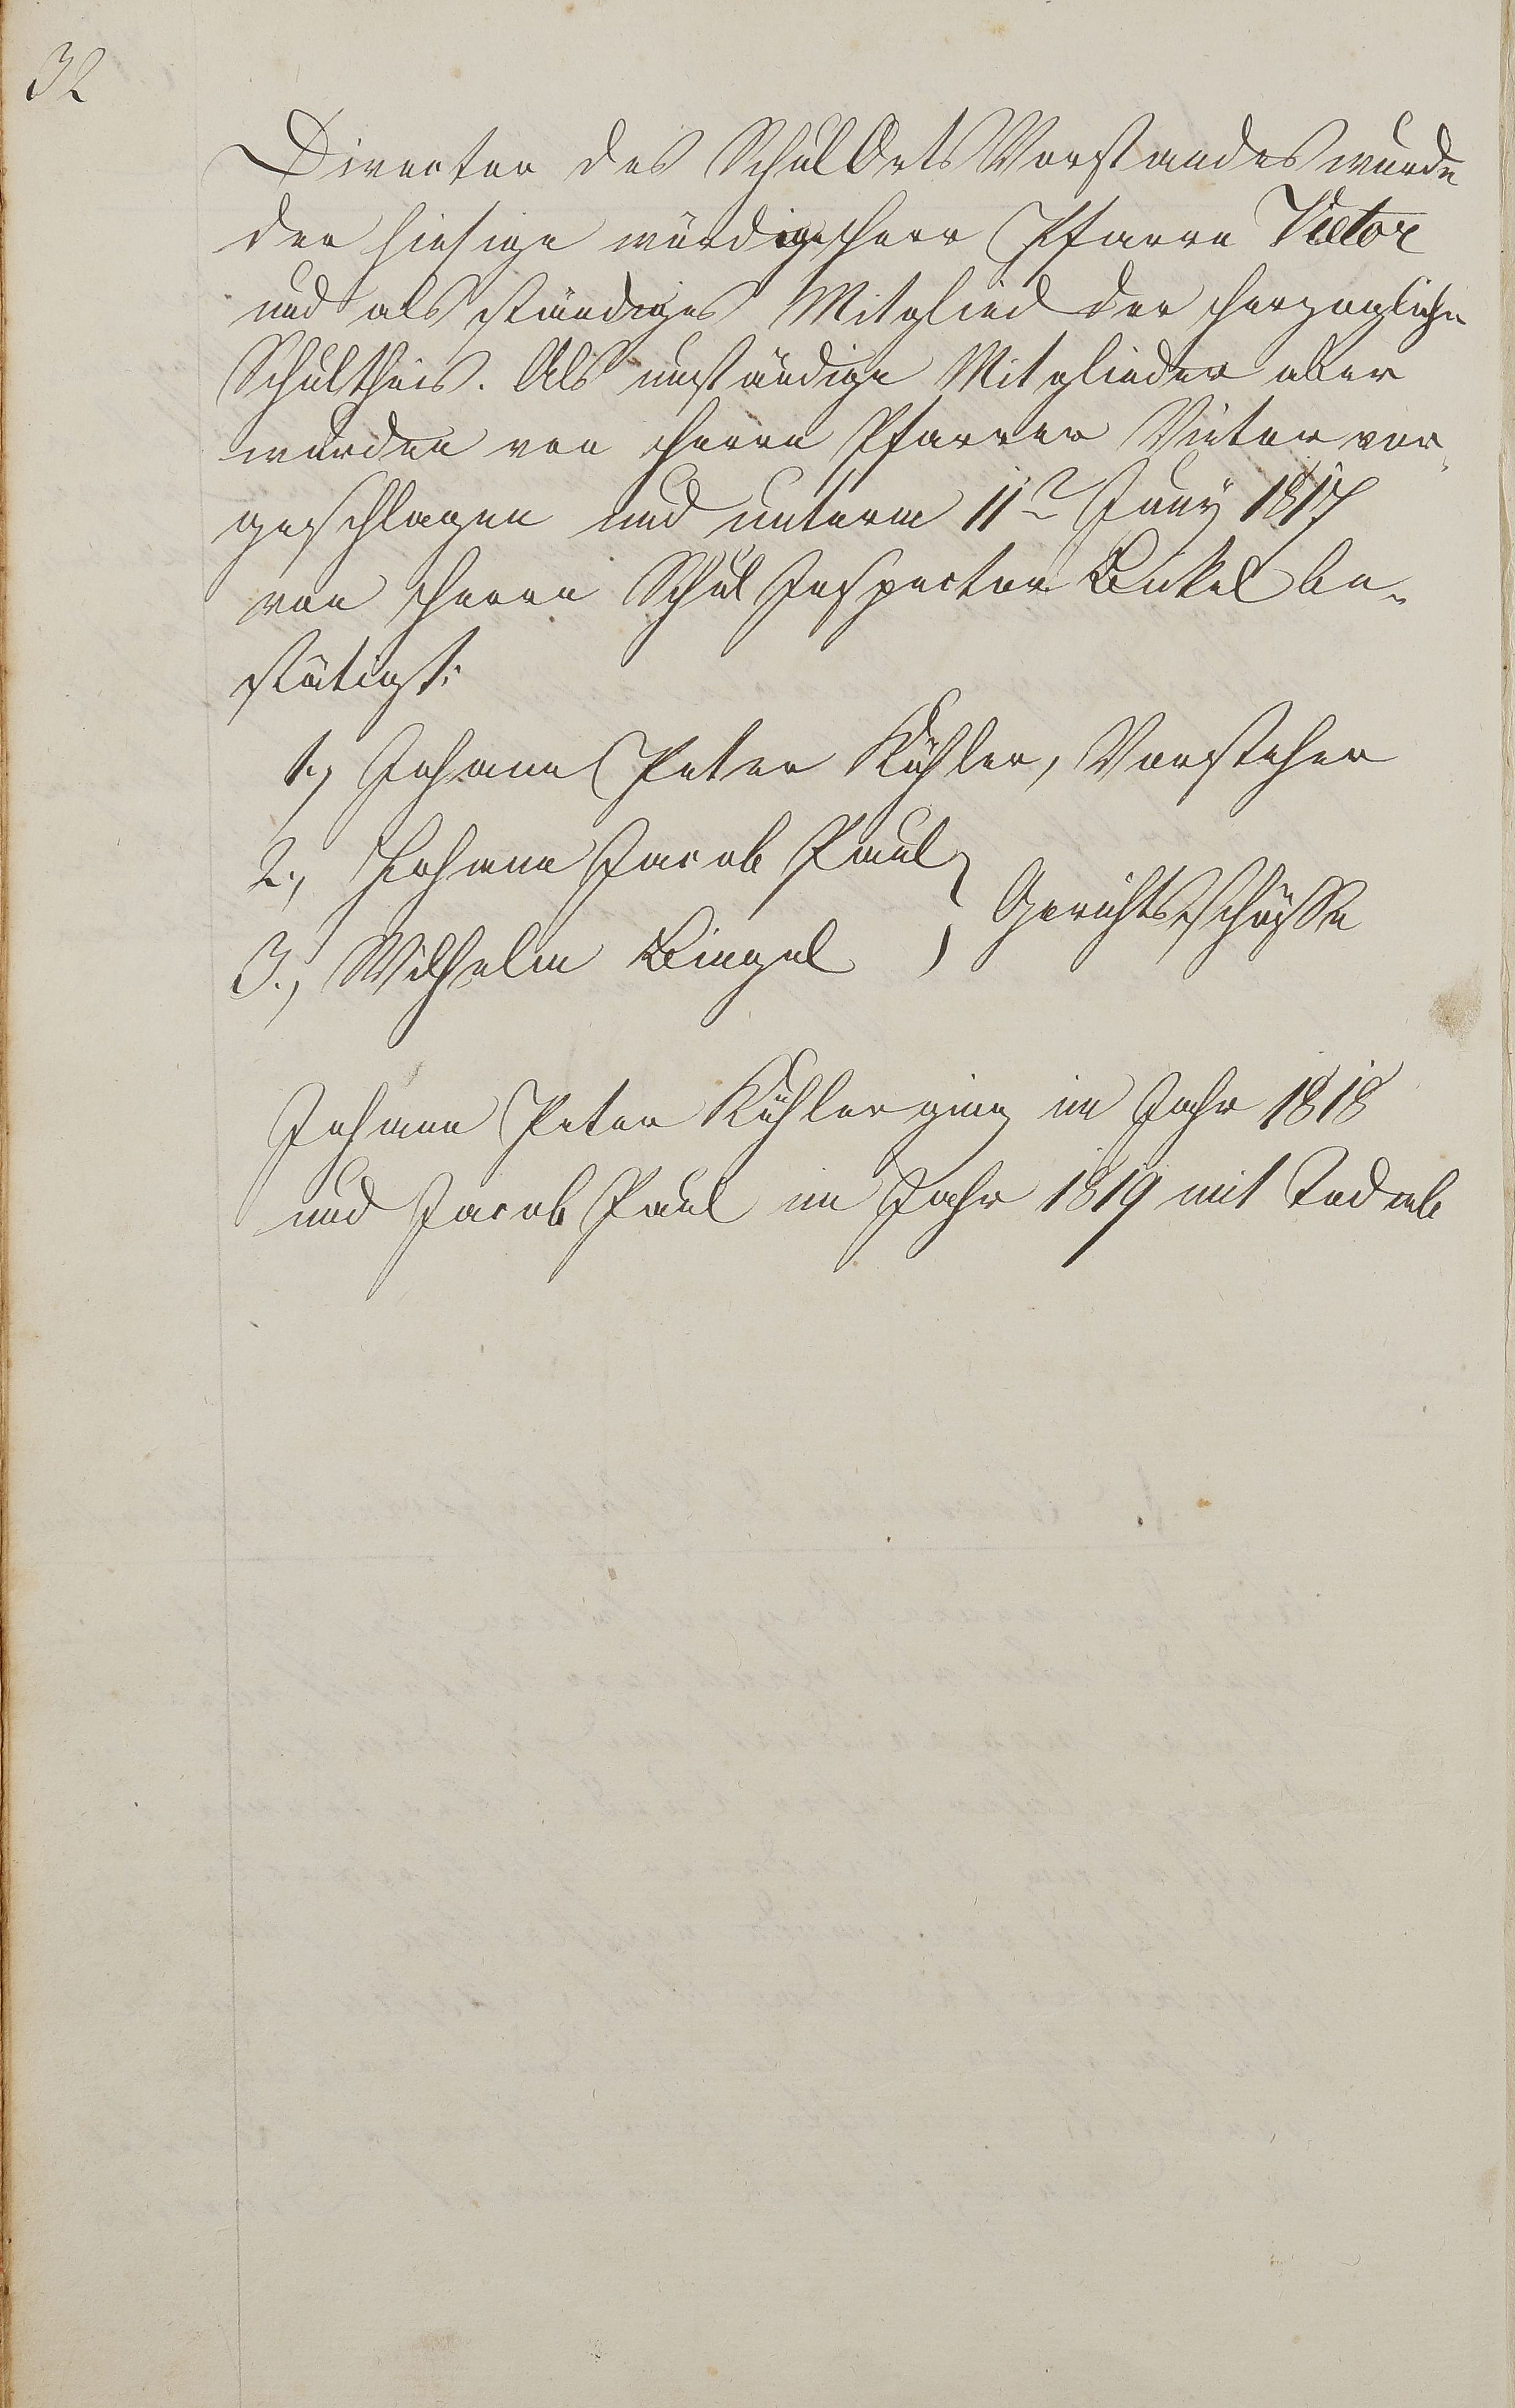 32
Director des Schul Orts Vorstandes wurde
der hiesige würdige Herr Pfarrer Vietor
und als ständiges Mitglied der Herzogliche
Schultheis. Als unständige Mitglieder aber
wurden von Herrn Pfarrer Vietor vor-
geschlagen und unterm 11n Juny 1817
von Herrn Schul Inspector Bickel be-
stätigt:
1., Johann Peter Köhler, Vorsteher
2., Johann Jacob Paul
3., Wilhelm Bingel } Gerichtsschöffe
Johann Peter Köhler ging im Jahr 1818
und Jacob Paul im Jahr 1819 mit Tod ab